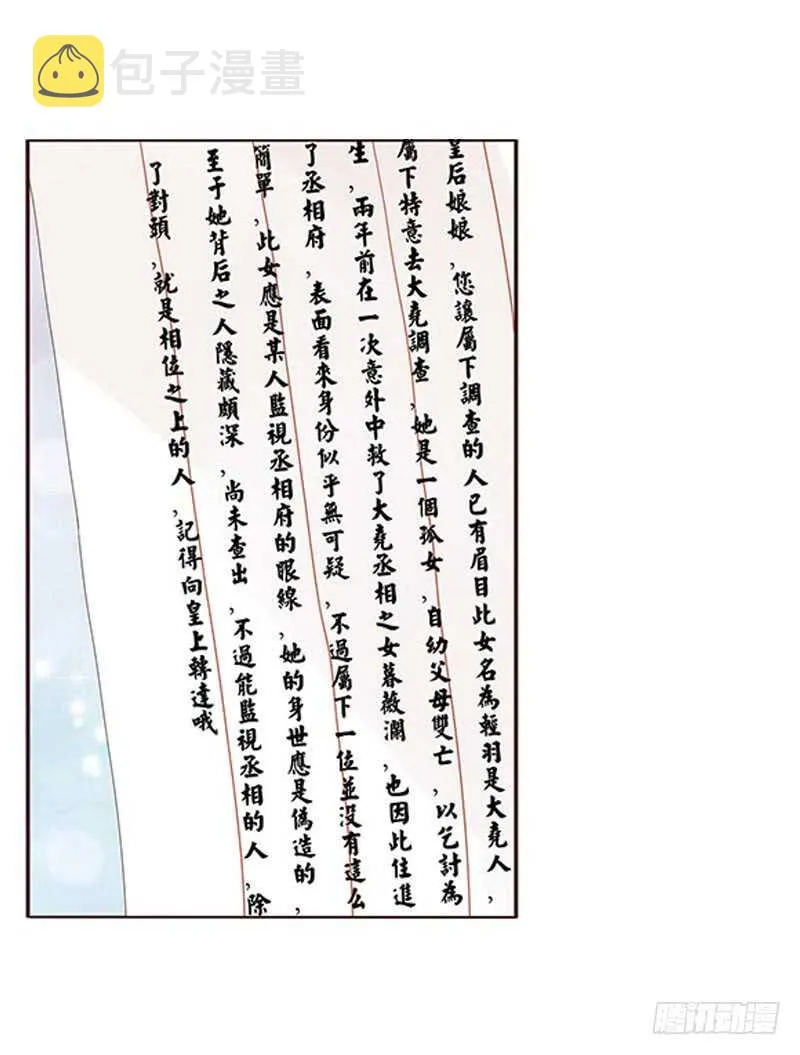 包子漫畫
皇后娘娘,您讓屬下調查的人已有眉目此女名為輕羽是大堯人,
屬下特意去大堯調查,她是一個孤女,自幼父母雙亡,以乞討為
生,兩年前在一次意外中救了大堯丞相之女暮薇瀾,也因此住進
了丞相府,表面看來身份似乎無可疑,不過屬下一位並沒有這么
簡單,此女應是某人監視丞相府的眼線,她的身世應是偽造的,
至于她背后之人隱藏頗深,尚未查出,不過能監視丞相的人,除
了對頭,就是相位之上的人,記得向皇上轉達哦
腾讯动漫